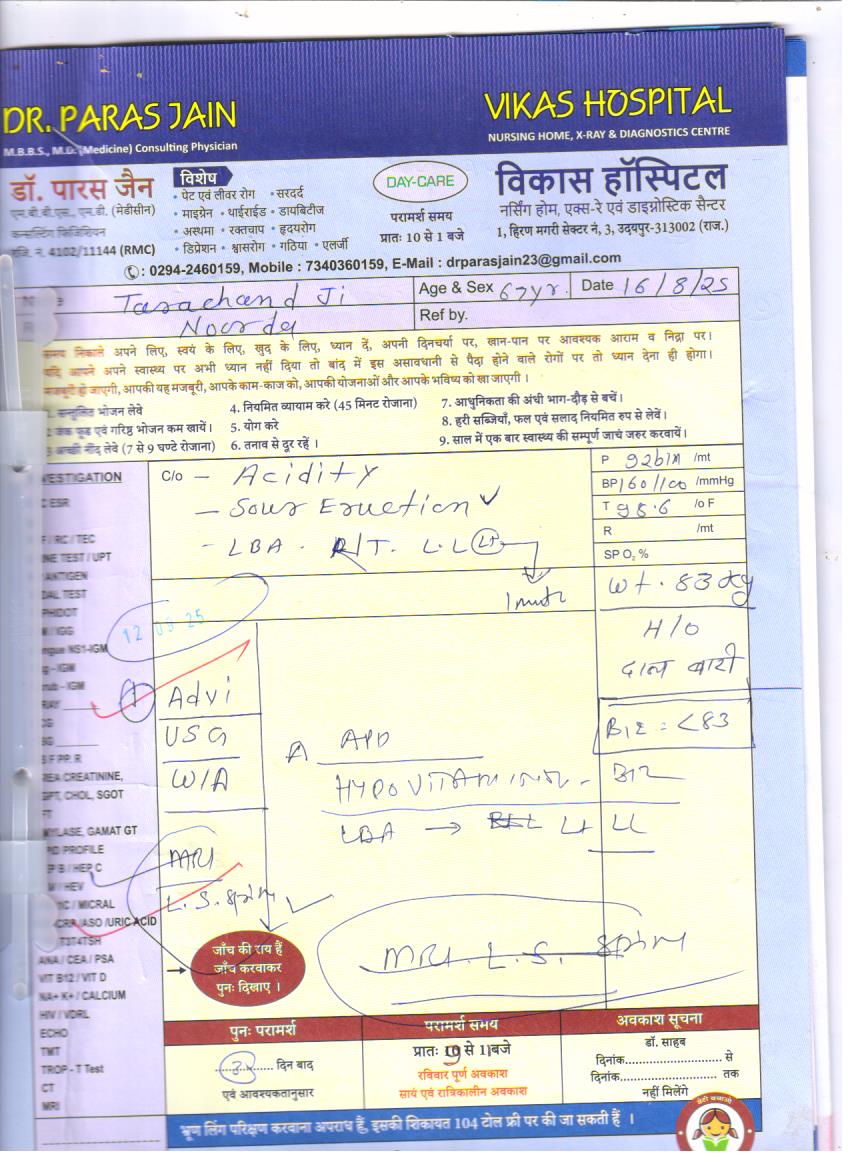 DR. PARAS JAIN
M.B.B.S., M.D. (Medicine) Consulting Physician
VIKAS HOSPITAL
NURSING HOME, X-RAY & DIAGNOSTICS CENTRE
डॉ. पारस जैन
एम.बी.बी.एस., एम.डी. (मेडीसीन)
कन्सल्टिंग फिजिशियन
रजि. नं. 4102/11144 (RMC)
विशेष
• पेट एवं लीवर रोग • सरदर्द
• माइग्रेन • थाईराईड • डायबिटीज
• अस्थमा • रक्तचाप • हृदयरोग
• डिप्रेशन • श्वासरोग • गठिया • एलर्जी
DAY-CARE
परामर्श समय
प्रातः 10 से 1 बजे
विकास हॉस्पिटल
नर्सिंग होम, एक्स-रे एवं डाइग्नोस्टिक सैन्टर
1, हिरण मगरी सेक्टर नं, 3, उदयपुर-313002 (राज.)
: 0294-2460159, Mobile : 7340360159, E-Mail : drparasjain23@gmail.com
Tarachand Ji
Age & Sex 67yr.
Date 16/8/25
Ref by.
अपने लिए, स्वयं के लिए, खुद के लिए, ध्यान दें, अपनी दिनचर्या पर, खान-पान पर आवश्यक आराम व निद्रा पर।
आपने अपने स्वास्थ्य पर अभी ध्यान नहीं दिया तो बांद में इस असावधानी से पैदा होने वाले रोगों पर तो ध्यान देना ही होगा।
मजबूरी हो जाएगी, आपकी यह मजबूरी, आपके काम-काज को, आपकी योजनाओं और आपके भविष्य को खा जाएगी ।
सन्तुलित भोजन लेवे
4. नियमित व्यायाम करे (45 मिनट रोजाना)
7. आधुनिकता की अंधी भाग-दौड़ से बचें।
फूड एवं गरिष्ठ भोजन कम खायें।
5. योग करे
8. हरी सब्जियाँ, फल एवं सलाद नियमित रुप से लेवें।
अच्छी नींद लेवे (7 से 9 घण्टे रोजाना)
6. तनाव से दूर रहें ।
9. साल में एक बार स्वास्थ्य की सम्पूर्ण जाचं जरुर करवायें।
C/o – Acidity
– Sour Eructation
– LBA . R/T. L.L Lt
P 92b/m /mt
BP 160/100 /mmHg
T 98.6 /o F
R /mt
SP O₂ %
Wt. 83 Kg
H/O
B12 = <83
12 25
ESR
/ RC / TEC
NE TEST / UPT
ANTIGEN
DAL TEST
PHIDOT
/ IGG
NS1-IGM
- IGM
- IGM
PP. R
CREATININE,
GPT, CHOL, SGOT
MYLASE, GAMAT GT
PROFILE
B / HEP C
/ HEV
/ MICRAL
/ASO /URIC ACID
T3T4TSH
ANA / CEA / PSA
VIT B12 / VIT D
NA+ K+ / CALCIUM
HIV / VDRL
ECHO
TMT
TROP - T Test
CT
MRI
Advi
USG
W/A
MRI
L. S. spine
A APD
HYPOVITAMINOSIS - B12
LBA → Lt LL
MRI. L. S. spine
जाँच की राय हैं
जाँच करवाकर
पुनः दिखाए ।
पुनः परामर्श
दिन बाद
एवं आवश्यकतानुसार
परामर्श समय
प्रातः 9 से 1 बजे
रविवार पूर्ण अवकाश
सायं एवं रात्रिकालीन अवकाश
अवकाश सूचना
डॉ. साहब
दिनांक............................ से
दिनांक............................ तक
नहीं मिलेंगे
भ्रूण लिंग परिक्षण करवाना अपराध हैं, इसकी शिकायत 104 टोल फ्री पर की जा सकती हैं ।
बेटी बचाओ